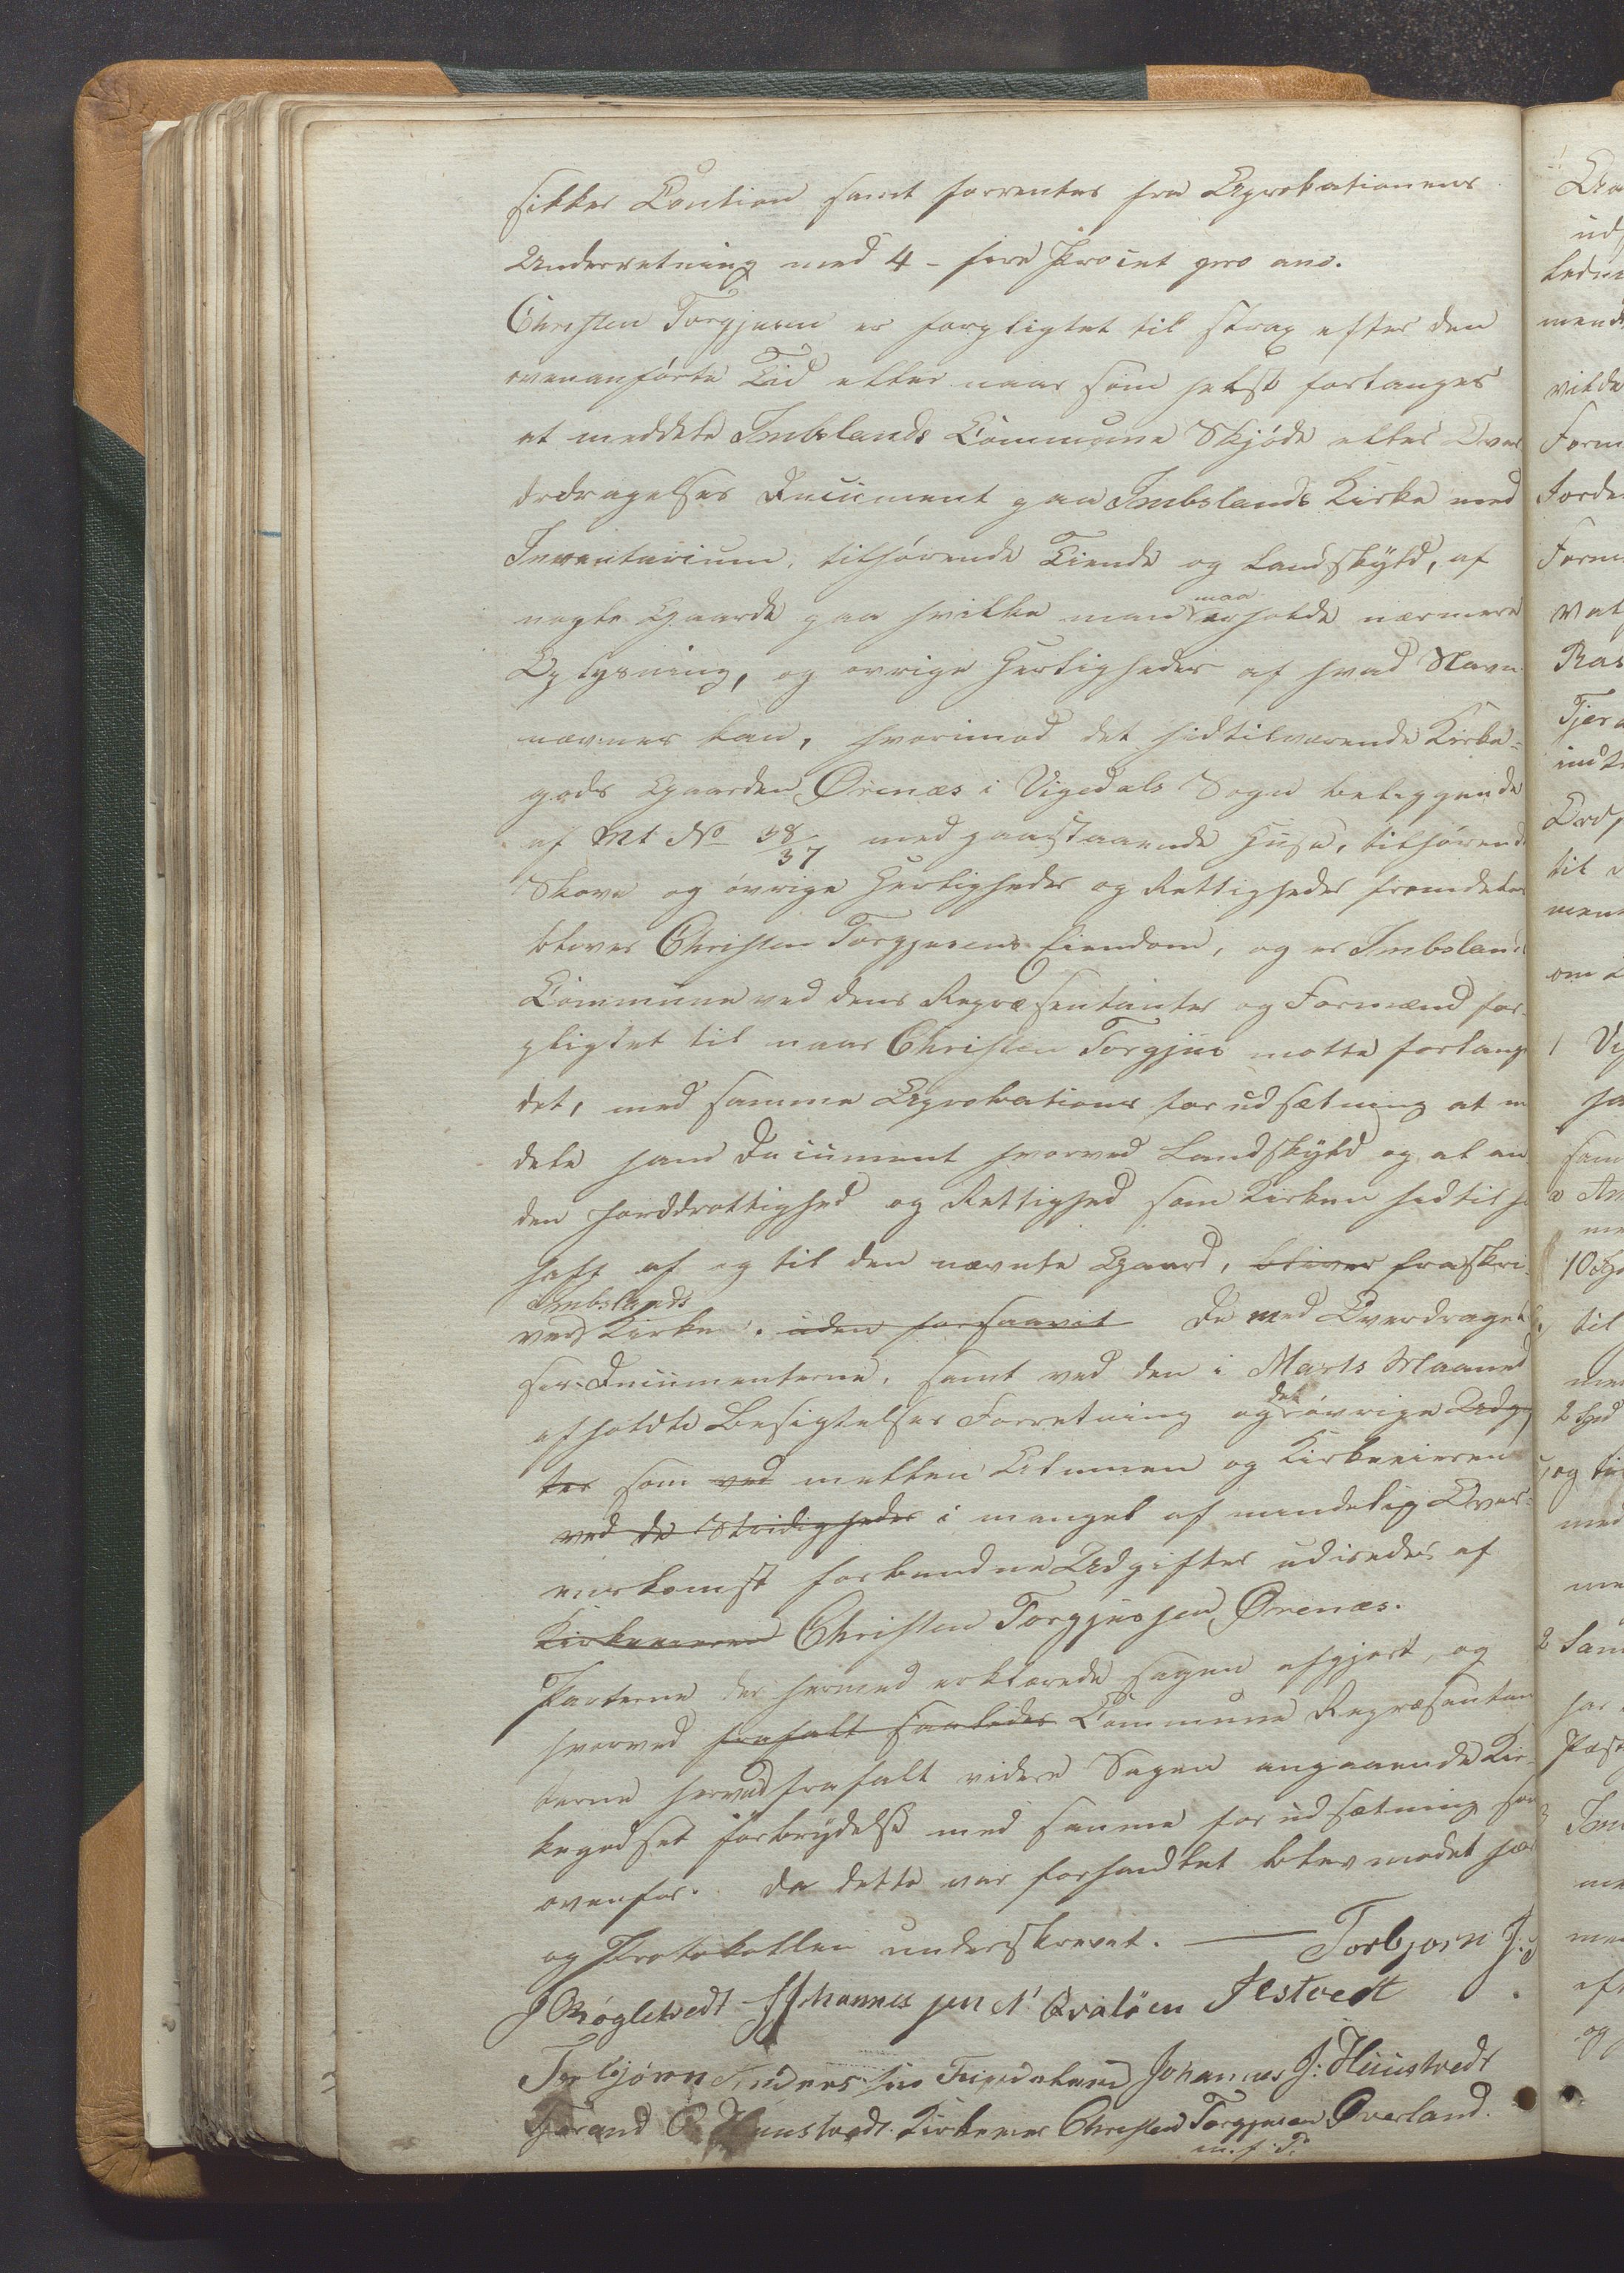 sikker Caution samt forrentes fra Aprobationens
Underretning med 4 - fire Procent pro ano.
Christen Torgjusen er forpligtet til strax efter den
ovenanförte Tid eller naar som helst forlanges
at meddele Imbslands Commune Skjöde eller Over
drdragelses Document paa Imbslands Kirke med
Inventarium, tilhörende Tiende og Landskyld, af
nogle Gaarde paa hvilke man maa erholde nærmere
Oplysning, og ovrige Herligheder af hvad Navn
nævnes kan, hvorimod det hidtilværende Kirke-
gods Gaarden Örenæs i Vigedals Sogn beliggende
af Mt No 38/37 med paastaaende Huse, tilhörend
Skove og övrige Herligheder og Rettigheder fremdeles
bliver Christen Torgjusens Eiendom, og er Imbsland
Commune ved dens Repræsentanter og Formænd for-
pligtet til naar Christen Torgjus motte forlange
det, med samme Aprobations forudsætning at m
dele ham Document hvorved Landskyld og al an
den herddrottighed og Rettighed som Kirken hidtil h
haft af og til den nævnte Gaard, bliver fraskri-
Imbslands
ves Kirke. uden forsaavit De med Overdragel
ses Documenterne, samt ved den i Marts Maaned
afholdte Besigtelses Forretning og de övrige Udgif
ter som ved mellem Almuen og Kirkeeieren
ved de Stridigheder i mangel af mindelig Over-
enskomst forbundne Udgifter udredes af
Kirkeeieren Christen Torgjussen Örenæs.
Parterne der hermed erklærede sagen afgjort, og
hvorved frafalt saaledes Commune Repræsentan
terne herved frafalt videre Sagen angaaende Kir-
kegodset forbrydelse med samme forudsætning som
ovenfor. da dette var forhandlet blev modet hæ
og Protokollen underskrevet. — Torbjorn J:
J Röglevedt Johannes sen N Qvalöen Ilstvedt
Torbjörn Anders sen Johannes J: Huustvedt
Tjerand O Huustvedt. Kirkeeier Christen Torgjusen Överland.
m. f. P.